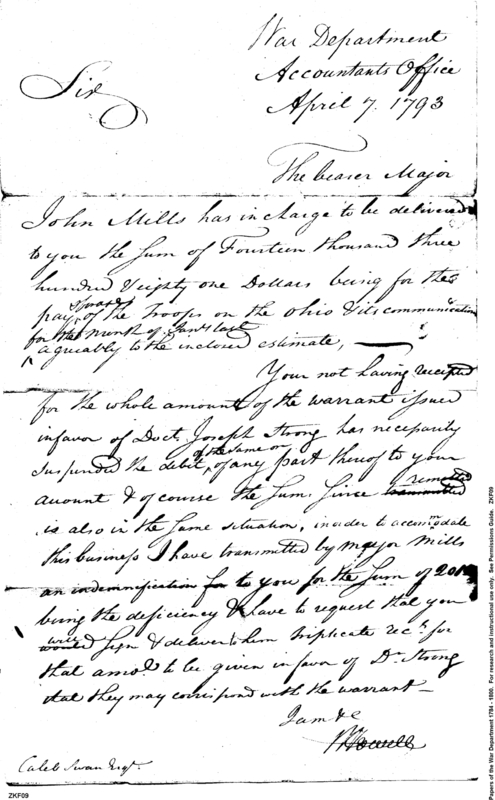 War Department
Accountants Office
April 7. 1793
Sir
The bearer Major
John Mills has in charge to be delivered
to you the Sum of Fourteen thousand three
hundred & eighty one Dollars being for the
pay & forage of the Troops on the Ohio & its communication
for the Month of Jany last
agreeably to the inclosed estimate,
Your not having receipted
for the whole amount of the warrant issued
in favor of Doct. Joseph Strong has necessarily
suspended the debit, of the same or of any part thereof to your
account & of course the Sum Since transmitted remitted
is also in the same situation, in order to accommodate
this business I have transmitted by Major Mills
an indemnification for to you for the Sum of
being the deficiency & have to request that you
would will Sign & deliver to him triplicate rects for
that amot to be given in favor of Dr. Strong
that they may correspond with the warrant
I am &c
J Howell
Caleb Swan Esqr.
ZKF09
Papers of the War Department 1784 - 1800. For research and instructional use only. See Permissions Guide. ZKF09